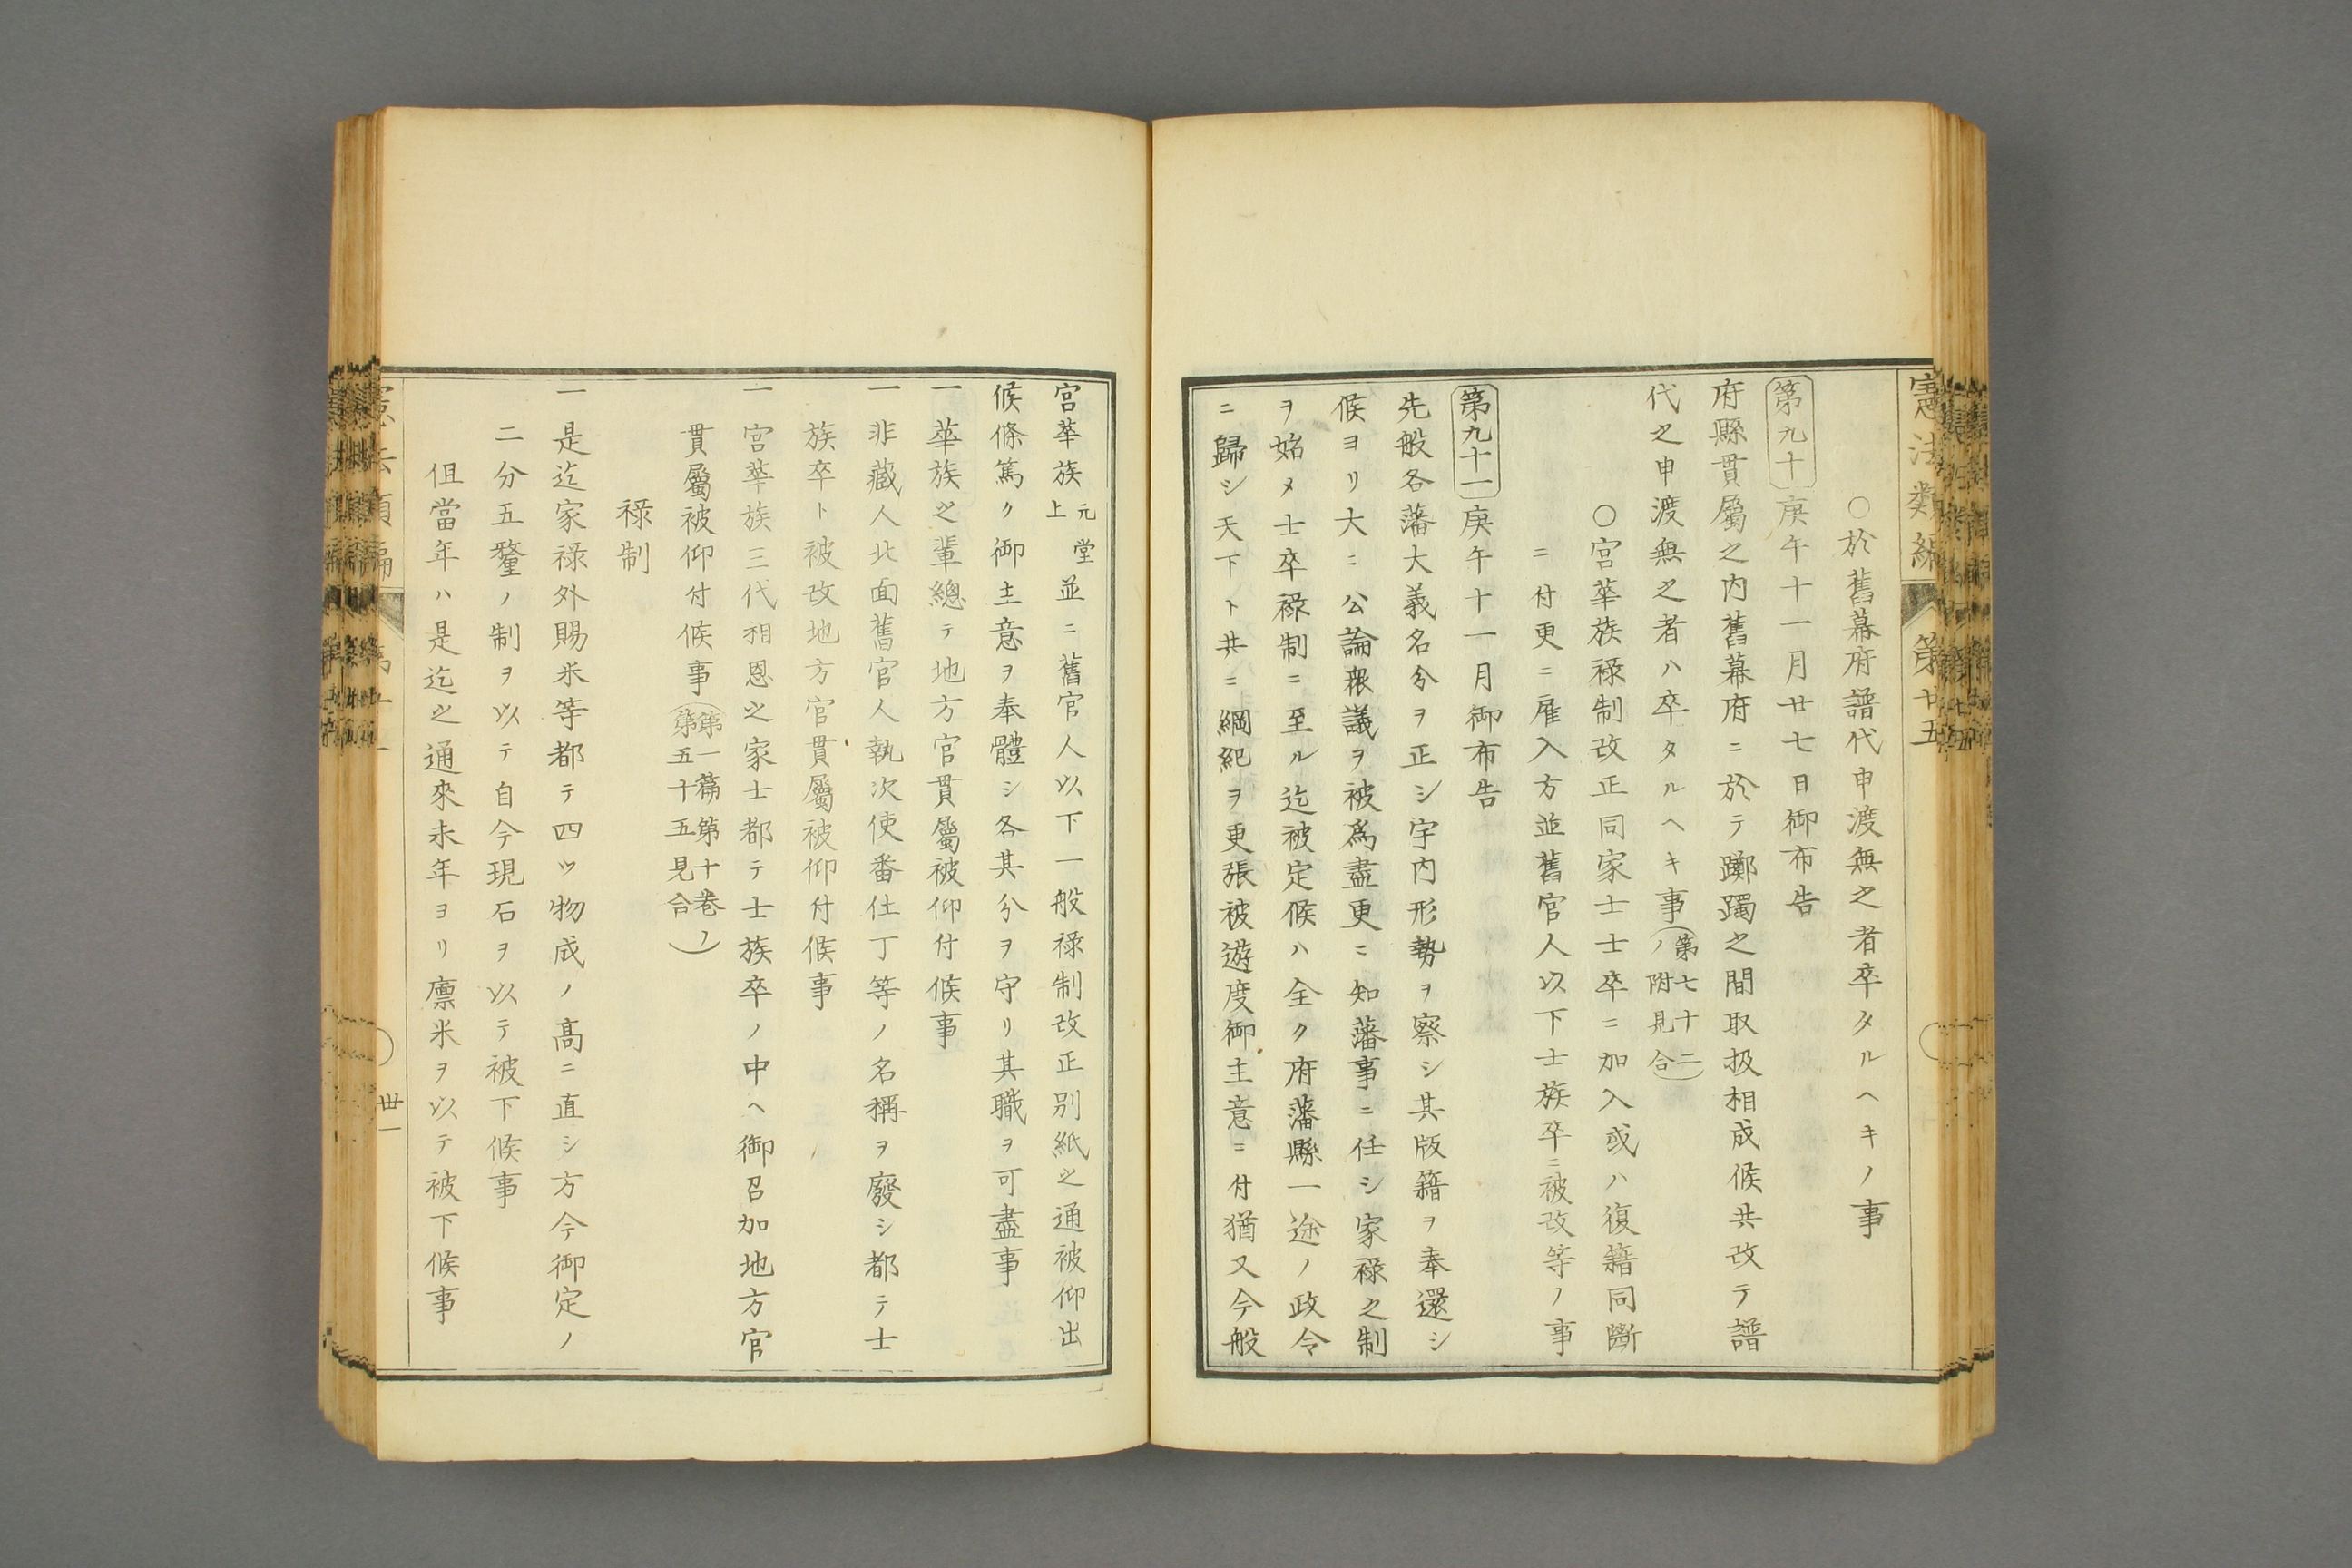 憲法類編 第廿五
○於舊幕府譜代申渡無之者卒タルヘキノ事
第九十 庚午十一月廿七日御布告
府縣貫屬之内舊幕府ニ於テ躑躅之間取扱相成候共改テ譜
代之申渡無之者ハ卒タルヘキ事(第七十二ノ附見合)
○宮華族祿制改正同家士士卒ニ加入或ハ復籍同斷
ニ付更ニ雇入方並舊官人以下士族卒ニ被改等ノ事
第九十一 庚午十一月御布告
先般各藩大義名分ヲ正シ宇内形勢ヲ察シ其版籍ヲ奉還シ
候ヨリ大ニ公論衆議ヲ被爲盡更ニ知藩事ニ任シ家祿之制
ヲ始メ士卒祿制ニ至ル迄被定候ハ全ク府藩縣一途ノ政令
ニ歸シ天下ト共ニ綱紀ヲ更張被遊度御主意ニ付猶又今般
宮華族元堂上並ニ舊官人以下一般祿制改正別紙之通被仰出
候條篤ク御主意ヲ奉體シ各其分ヲ守リ其職ヲ可盡事
一華族之輩總テ地方官貫屬被仰付候事
一非藏人北面舊官人執次使番仕丁等ノ名稱ヲ廢シ都テ士
族卒ト被改地方官貫屬被仰付候事
一宮華族三代相恩之家士都テ士族卒ノ中ヘ御召加地方官
貫屬被仰付候事(第一篇第十巻ノ第五十五見合)
祿制
一是迄家祿外賜米等都テ四ツ物成ノ高ニ直シ方今御定ノ
二分五釐ノ制ヲ以テ自今現石ヲ以テ被下候事
但當年ハ是迄之通來未年ヨリ廩米ヲ以テ被下候事
丗一